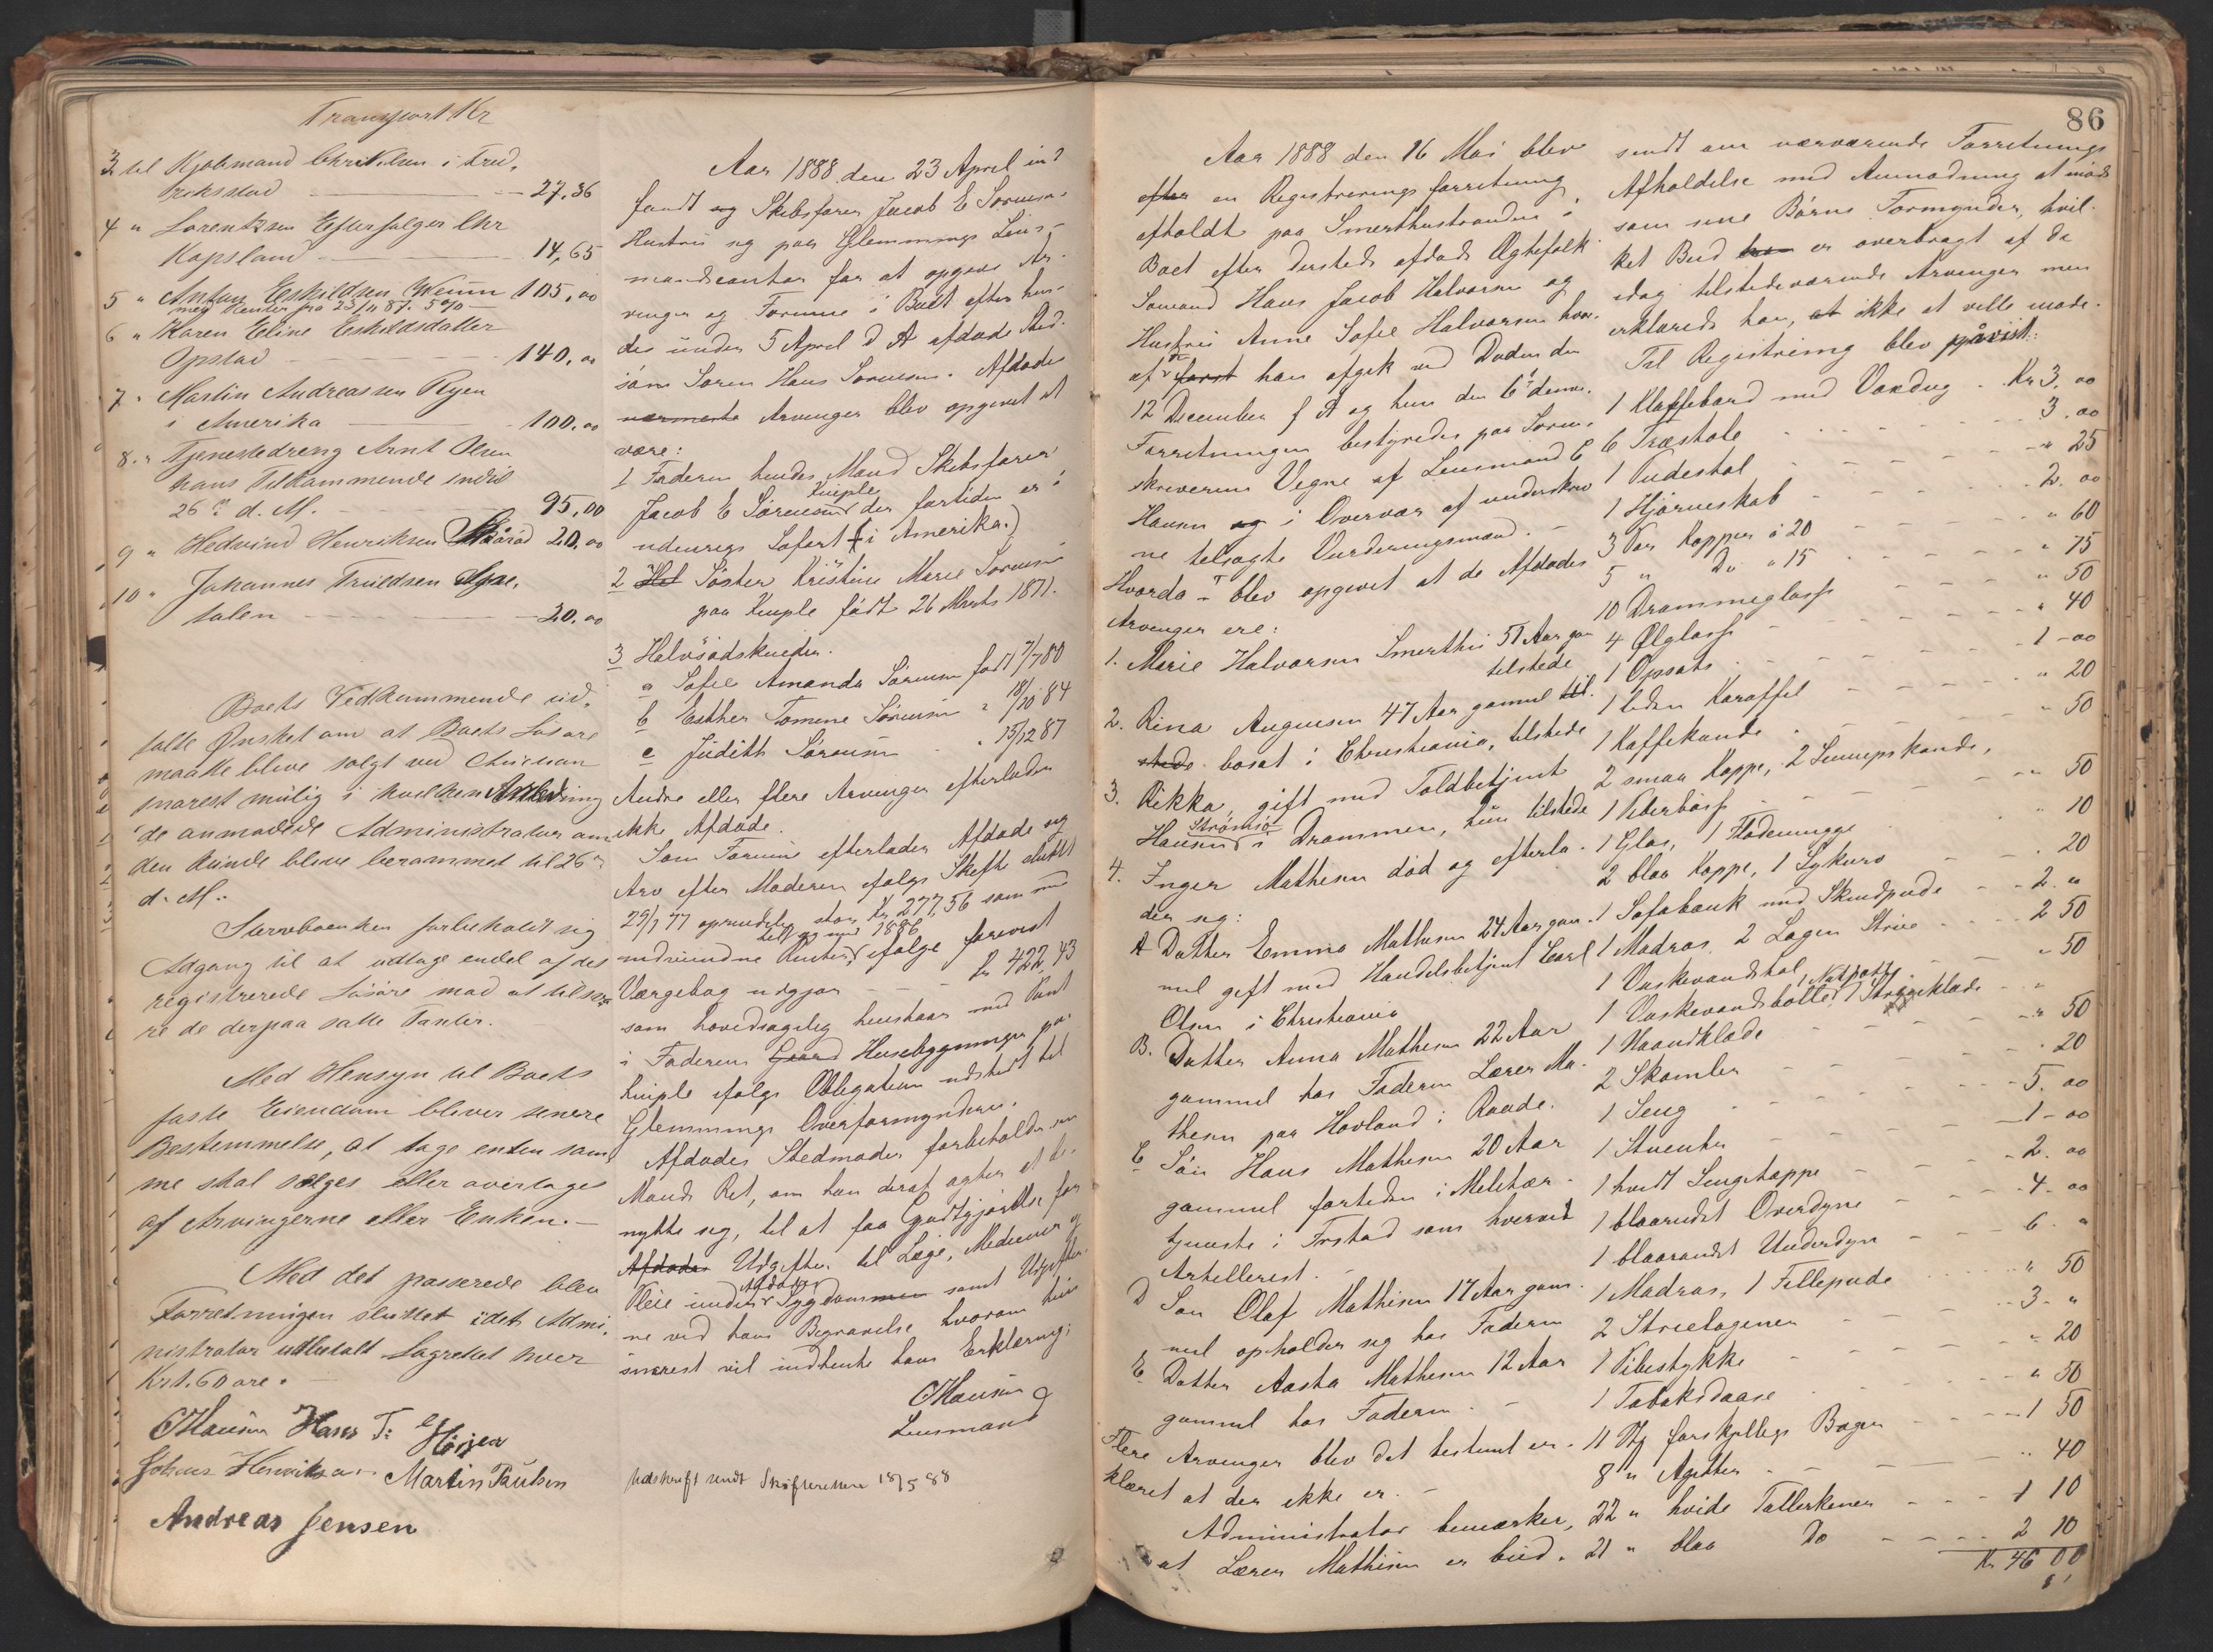 Transport Kr
3 til Kjøbmand Chrikelsen i Fred.
riksstad 27,36
4 " Lorentzen Efterfølger Chr
Kopsland 14,65
5 " Anton Eskildsen Weum 105,00
med Renter fra 23/11 87. 5%
6 " Karen Eline Eskildsdatter
Opstad 140,00
7 " Martin Andreassen Ryen
i Amerika 100,00
8 " Tjenestedreng Arnt Olsen
hans Tilkommende indtil
26de d. M. 95,00
9 " Hedvind Henriksen Skaarød 20,00
10 " Johannes Truldsen
talen 20,00
Boets Vedkommende ud.
talte Ønsket om at Boets Løsøre
maatte blive solgt ved Auction
snarest mulig i hvilken Anledning
de anmodede Administrator om
den kunde blive berammet til 26de
d. M.
Stervboenken forbeholdt sig
Adgang til at udtage endel af det
registrerede Løsøre mod at tilsva
re de derpaa satte Taxter.
Med Hensyn til Boets
faste Eiendom bliver senere
Bestemmelse, at tage enten sam
me skal sælges eller overtages
af Arvingerne eller Enken.-
Med det passerede blev
Forretningen sluttet idet Admi.
nistrator udbetalt Lagrettet hver
Kr 1.60 øre.
CHansen Hans T. Hørjen
Johan Henriksen Martin Paulsen
Andreas Jensen
Aar 1888 den 23 April ind
fandt og Skibsfører Jacob E Sørensens
Hustru sig paa Glemminge Lens-
mandscontor for at opgive Ar-
vinger og Formue i Boet efter hen-
des under 5 April d A afdøde Sted-
søn Søren Hans Sørensen. Afdødes
nærmeste Arvinger blev opgivet at
være:
1 Faderen hendes Mand Skibsfører
Jacob E Sørensen Kniple der fortiden er i
udenrigs Søfart (i Amerika.)
2 Hel Søster Kristine Marie Sørensen
paa Kniple født 26 Marts 1871.
3 Halvsødskende.
a Sofie Amanda Sørensen født 7/7 80
b Esther Tomine Sørensen " 18/10 84
c Judith Sørensen " 15/12 87
Andre eller flere Arvinger efterlader
ikke Afdøde.
Som Formue efterlader Afdøde sig
Arv efter Moderen ifølge Skifte sluttet
29/1 77 oprindelig stor Kr 277,56 som med
indvundne Renter til og med 1886 ifølge forevist
Værgebog udgjør Kr 422,43
som hovedsagelig henstaar mod Pant
i Faderens Gaard Husebygninger paa
Kniple ifølge Obligation udstedt til
Glemminge Overformynderi.
Afdødes Stedmoder forbeholder sin
Mands Ret, om han deraf agter at be-
nytte sig, til at faa Godtgjørelse for
Afdødes Udgifter til Læge, Medicin og
Pleie under Afdødes Sygdommen samt Udgifter-
ne ved hans Begravelse hvorom hun
snarest vil indhente hans Erklæring;
CHansen
Lensmand
Udskrift sendt Skifteretten 18/5 88
86
Aar 1888 den 16 Mai blev
efter en Registreringsforretning
afholdt paa Smerthustranden i
Boet efter dersteds afdøde Ægtefolk
Sømand Hans Jacob Halvorsen og
Hustru Anne Sofie Halvorsen hvor-
af først han afgik ved Døden den
12 December f A og hun den 6te dennes.
Forretningen bestyredes paa Soren-
skriverens Vegne af Lensmand C
Hansen og i Overvær af underskrev
ne tilsagte Vurderingsmænd.-
Hvorda - blev opgivet at de Afdødes
Arvinger ere:
1. Marie Halvorsen Smerthu 51 Aar gam
tilstede
2. Rina Augensen 47 Aar gammel til.
stede bosat i Christiania, tilstede
3. Rikka, gift med Toldbetjent
Hansen Strømsø i Drammen, hun tilstede
4. Inger Mathisen død og efterla-
der sig:
A Datter Emma Mathisen 24 Aar gam-
mel gift med Handelsbetjent Carl
Olsen i Christiania
B. Datter Anna Mathisen 22 Aar
gammel hos Faderen Lærer Ma-
thisen paa Hovland i Raade.
C Søn Hans Mathisen 20 Aar
gammel fortiden i Militær-
tjeneste i Frstad som hvervet
Artillerist.-
D Søn Olaf Mathisen 17 Aar gam-
mel opholder sig hos Faderen
E Datter Aasta Mathisen 12 Aar
gammel hos Faderen.-
Flere Arvinger blev det bestemt er-
klæret at der ikke er.-
Administrator bemærker,
at Lærer Mathisen er bud-
sendt om nærværende Forretnings
Afholdelse med Anmodning at møde
som sine Børns Formynder, hvil-
ket Bud han er overbragt af de
idag tilstedeværende Arvinger men
erklærede han, at ikke at ville møde.
Til Registrering blev påvist:
1 Klaffebord med Voxdug Kr 3.00
6 Træstole 3.00
1 Pudestol " 25
1 Hjørneskab 2.00
3 Par Kopper à 20 " 60
5 " Do " 15 " 75
10 Drammeglass " 50
4 Ølglass " 40
1 Opsats 1-00
1 liden Karaffel " 20
1 Kaffekande " 50
2 smaa Koppe, 2 Sennepskande,
1 Viberbøss " 50
1 Glas, 1 Flødemugge " 10
2 blaa Koppe, 1 Sykurv " 20
1 Sofabænk med Skindpude 2. "
1 Madras 2 Lagen Strie 2 50
1 Vaskevandstol " 50
1 Vaskevandsbolle, 1 Natpotte 1 Strygeklæde "
1 Haandklæde " 50
2 Skamler " 20
1 Seng 5.00
1 Stuenhr 1-00
1 hvidt Sengetæppe 2.00
1 blaarudet Overdyne 4.00
1 blaarandet Underdyn 6. "
1 Madras, 1 Fillepude " 50
2 Strielagener 3- "
1 Pibestykke " 20
1 Tobaksdaase " 50
11 Stk forskjellige Bøger 1 50
8 " Agetter " 40
22 " hvide Tallerkener 1 10
21 " blaa Do 2 10
Kr 46 00